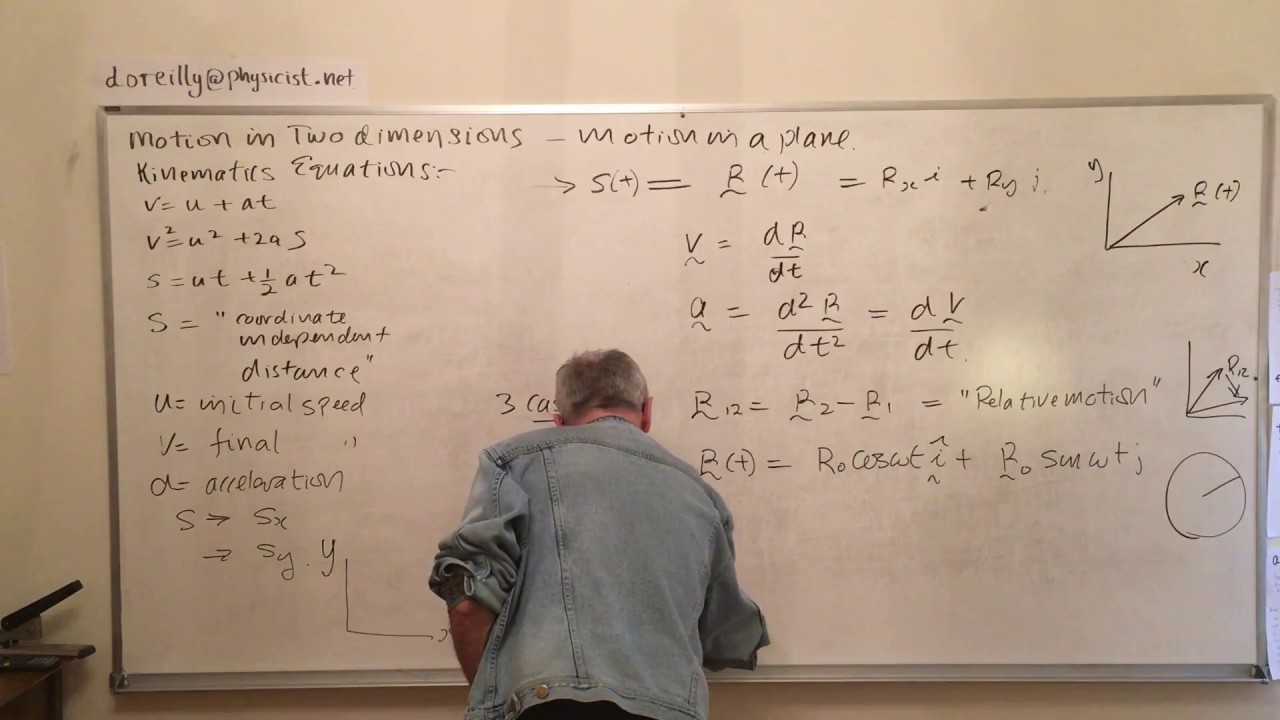 doreilly@physicist.net
Motion in Two dimensions - motion in a plane.
Kinematics Equations:-
v = u + at
v² = u² + 2as
s = ut + ½ at²
S = "coordinate
independent
distance"
u = initial speed
v = final "
a = accelaration
S → Sx
→ Sy.
y
3
→ S(t) = R(t) = Rx i + Ry j.
v = dR/dt
a = d²R/dt² = dv/dt.
R12 = R2 - R1 = "Relative motion"
R(t) = R0 cosωt i + R0 sinωt j
y
R(t)
x
R12